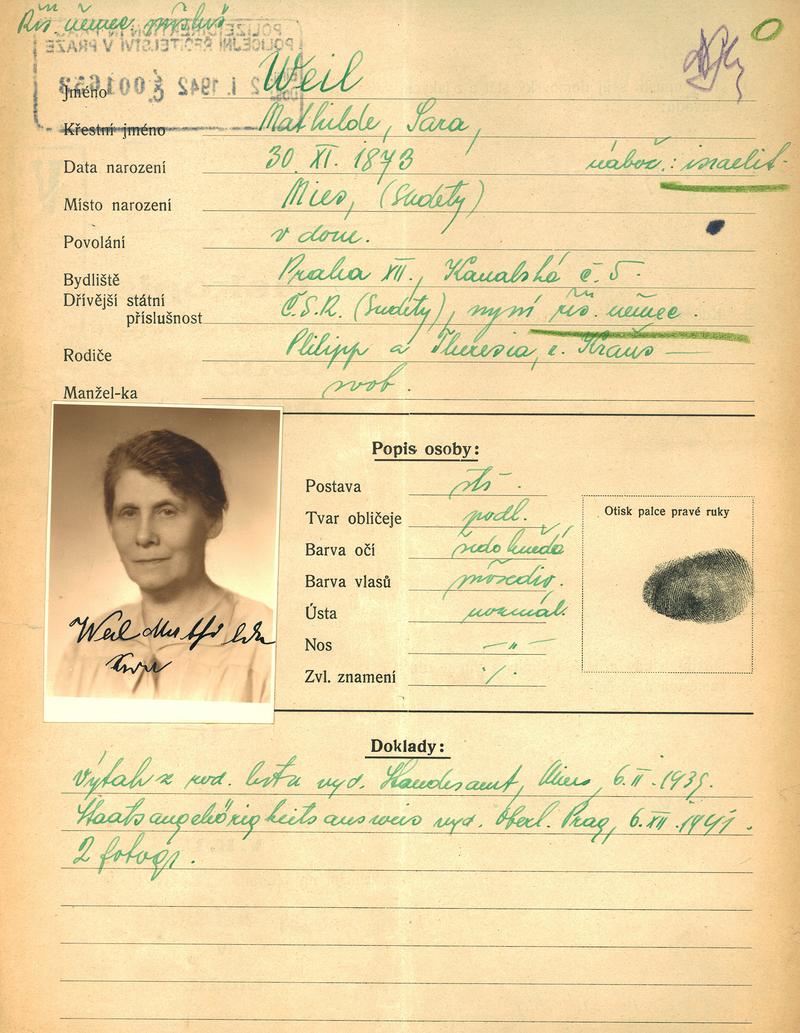 Říš. němec. přísluš
POLIZEIDIREKTION IN PRAG
POLICEJNÍ ŘEDITELSTVÍ V PRAZE
2. I. 1942 č 001653
Jméno Weil
Křestní jméno Mathilde, Sara,
Data narození 30. XI. 1873 nábož.: israelit.
Místo narození Mies, (Sudety)
Povolání v dom.
Bydliště Praha XII., Kanalská č. 5.
Dřívější státní
příslušnost Č.S.R. (Sudety), nyní říš. němec.
Rodiče Philipp a Theresia, r. Kraus —
Manžel-ka svob.
Popis osoby:
Postava stř.
Tvar obličeje podl.
Barva očí šedohnědá
Barva vlasů
Ústa normál.
Nos — „ —
Zvl. znamení ·/·
Otisk palce pravé ruky
Weil Mathilde
Sara
Doklady:
Výtah z rod. listu vyd. Standesamt, Mies, 6. II. 1939.
Staatsangehörigkeitsausweis vyd. Oberl. Prag, 6. XII. 1941.
2 fotogr.